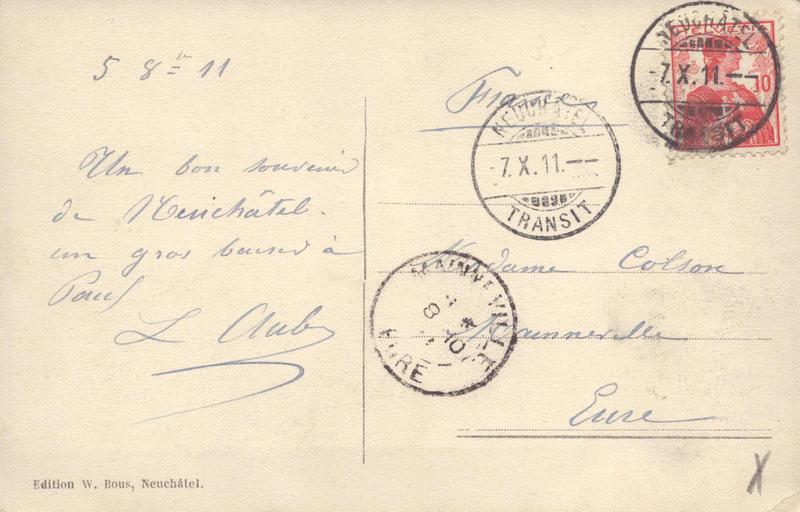 5 8re 11
Un bon souvenir
de Neuchâtel.
un gros baiser à
Paul
L Aub
Edition W. Bous, Neuchâtel.
France
Madame Colson
Mainneville
Eure
NEUCHÂTEL
-7.X.11.--
TRANSIT
NEUCHÂTEL
-7.X.11.--
TRANSIT
HELVETIA
10
MAINNEVILLE
8 10
11
EURE
X